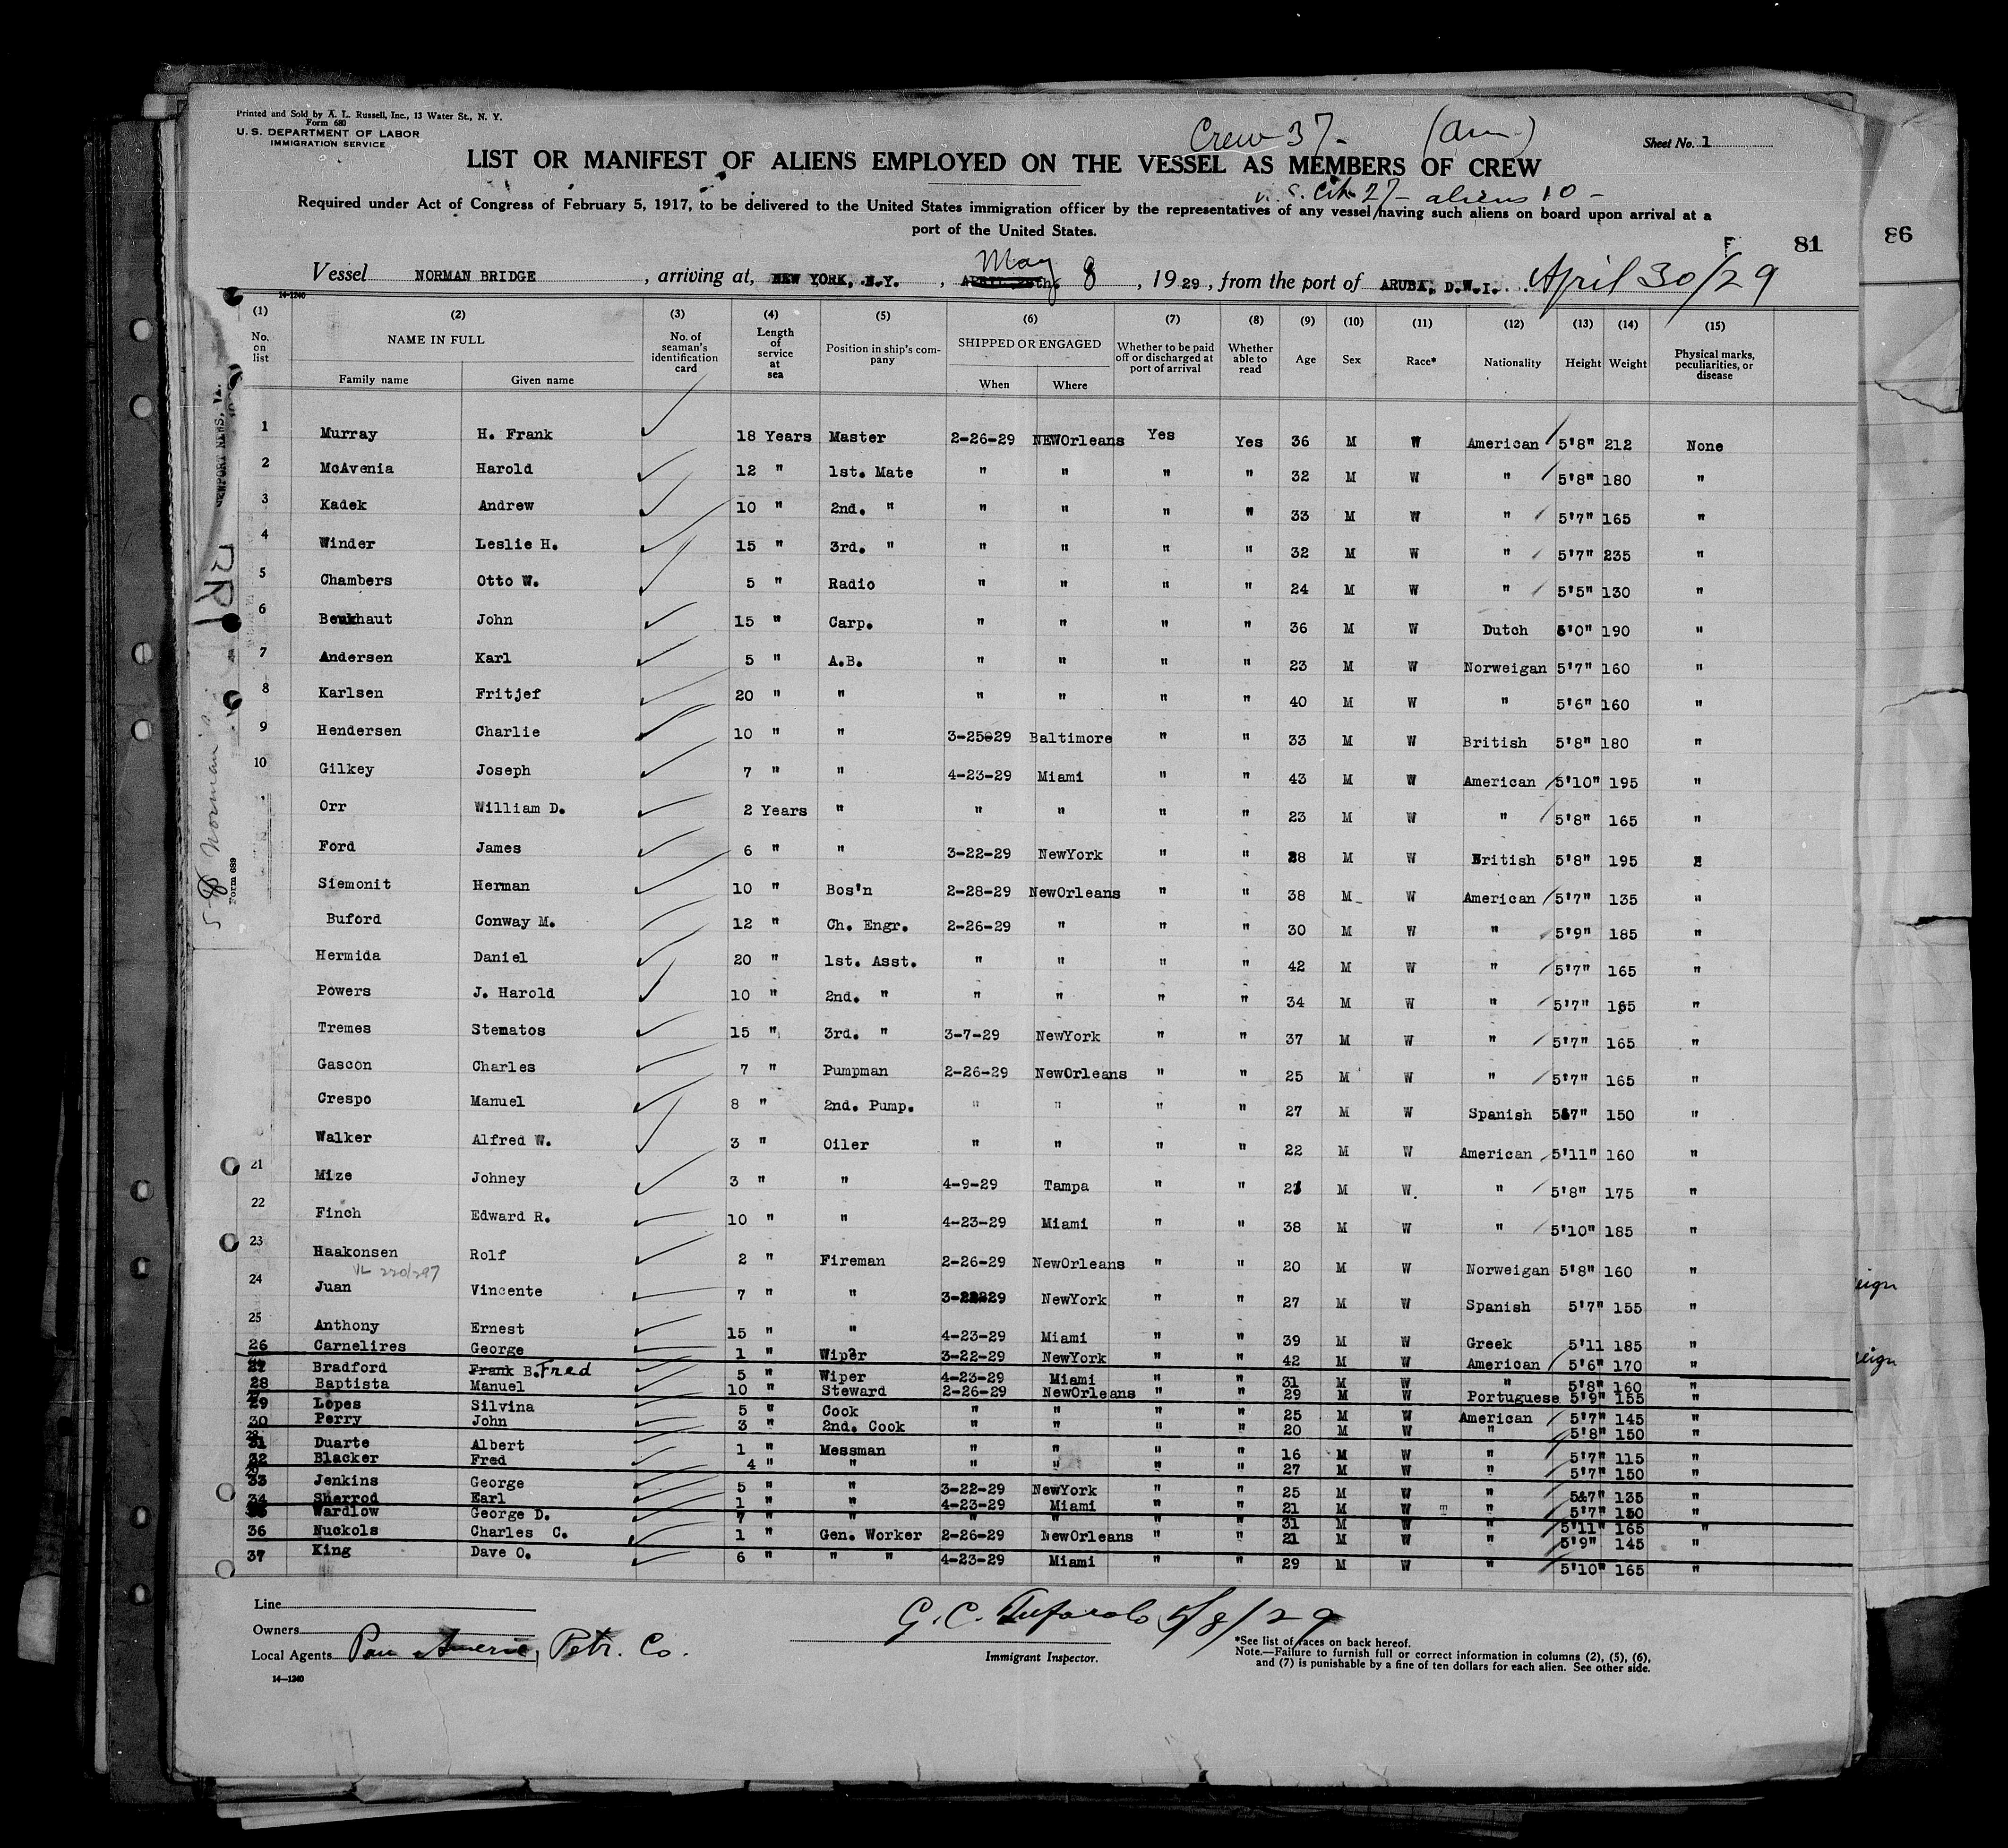 Printed and Sold by A. L. Russell, Inc., 13 Water St., N. Y.
Form 680
U. S. DEPARTMENT OF LABOR
IMMIGRATION SERVICE
Crew 37- (Am-)
Sheet No. 1
LIST OR MANIFEST OF ALIENS EMPLOYED ON THE VESSEL AS MEMBERS OF CREW
U. S. Cit. 27- aliens 10-
Required under Act of Congress of February 5, 1917, to be delivered to the United States immigration officer by the representatives of any vessel having such aliens on board upon arrival at a
port of the United States.
81 86
Vessel NORMAN BRIDGE , arriving at, NEW YORK, N.Y. , May 8 , 1929 , from the port of ARUBA, D.W.I. April 30/29
14-1240
(1) (2) (3) (4) (5) (6) (7) (8) (9) (10) (11) (12) (13) (14) (15)
No. on list NAME IN FULL Family name Given name No. of seaman's identification card Length of service at sea Position in ship's company SHIPPED OR ENGAGED When Where Whether to be paid off or discharged at port of arrival Whether able to read Age Sex Race* Nationality Height Weight Physical marks, peculiarities, or disease
1 Murray H. Frank 18 Years Master 2-26-29 NEWOrleans Yes Yes 36 M W American 5'8" 212 None
2 McAvenia Harold 12 " 1st. Mate " " " " 32 M W " 5'8" 180 "
3 Kadek Andrew 10 " 2nd. " " " " " 33 M W " 5'7" 165 "
4 Winder Leslie H. 15 " 3rd. " " " " " 32 M W " 5'7" 235 "
5 Chambers Otto W. 5 " Radio " " " " 24 M W " 5'5" 130 "
6 Beukhaut John 15 " Carp. " " " " 36 M W Dutch 6'0" 190 "
7 Andersen Karl 5 " A.B. " " " " 23 M W Norweigan 5'7" 160 "
8 Karlsen Fritjef 20 " " " " " " 40 M W " 5'6" 160 "
9 Hendersen Charlie 10 " " 3-25-29 Baltimore " " 33 M W British 5'8" 180 "
10 Gilkey Joseph 7 " " 4-23-29 Miami " " 43 M W American 5'10" 195 "
Orr William D. 2 Years " " " " " 23 M W " 5'8" 165 "
Ford James 6 " " 3-22-29 NewYork " " 28 M W British 5'8" 195 "
Siemonit Herman 10 " Bos'n 2-28-29 NewOrleans " " 38 M W American 5'7" 135 "
Buford Conway M. 12 " Ch. Engr. 2-26-29 " " " 30 M W " 5'9" 185 "
Hermida Daniel 20 " 1st. Asst. " " " " 42 M W " 5'7" 165 "
Powers J. Harold 10 " 2nd. " " " " " 34 M W " 5'7" 165 "
Tremes Stematos 15 " 3rd. " 3-7-29 NewYork " " 37 M W " 5'7" 165 "
Gascon Charles 7 " Pumpman 2-26-29 NewOrleans " " 25 M W " 5'7" 165 "
Crespo Manuel 8 " 2nd. Pump. " " " " 27 M W Spanish 5'7" 150 "
Walker Alfred W. 3 " Oiler " " " " 22 M W American 5'11" 160 "
21 Mize Johney 3 " " 4-9-29 Tampa " " 21 M W " 5'8" 175 "
22 Finch Edward R. 10 " " 4-23-29 Miami " " 38 M W " 5'10" 185 "
23 Haakonsen Rolf 2 " Fireman 2-26-29 NewOrleans " " 20 M W Norweigan 5'8" 160 "
VL 220/297
24 Juan Vincente 7 " " 3-22-29 NewYork " " 27 M W Spanish 5'7" 155 "
25 Anthony Ernest 15 " " 4-23-29 Miami " " 39 M W Greek 5'11 185 "
26 Carnelires George 1 " Wiper 3-22-29 NewYork " " 42 M W American 5'6" 170 "
27 Bradford Frank B. Fred 5 " Wiper 4-23-29 Miami " " 31 M W " 5'8" 160 "
28 Baptista Manuel 10 " Steward 2-26-29 NewOrleans " " 29 M W Portuguese 5'9" 155 "
29 Lopes Silvina 5 " Cook " " " " 25 M W American 5'7" 145 "
30 Perry John 3 " 2nd. Cook " " " " 20 M W " 5'8" 150 "
31 Duarte Albert 1 " Messman " " " " 16 M W " 5'7" 115 "
32 Blacker Fred 4 " " " " " " 27 M W " 5'7" 150 "
33 Jenkins George 5 " " 3-22-29 NewYork " " 25 M W " 5'7" 135 "
34 Sherrod Earl 1 " " 4-23-29 Miami " " 21 M W " 5'7" 150 "
35 Wardlow George D. 7 " " " " " " 31 M W " 5'11" 165 "
36 Nuckols Charles C. 1 " Gen. Worker 2-26-29 NewOrleans " " 21 M W " 5'9" 145 "
37 King Dave O. 6 " " " 4-23-29 Miami " " 29 M W " 5'10" 165 "
NEWPORT NEWS,
Form 689
Line
Owners
Local Agents Pan Americ, Petr. Co.
14-1240
G. C. 5/8/29
Immigrant Inspector.
*See list of races on back hereof.
Note.—Failure to furnish full or correct information in columns (2), (5), (6),
and (7) is punishable by a fine of ten dollars for each alien. See other side.
eign
eign